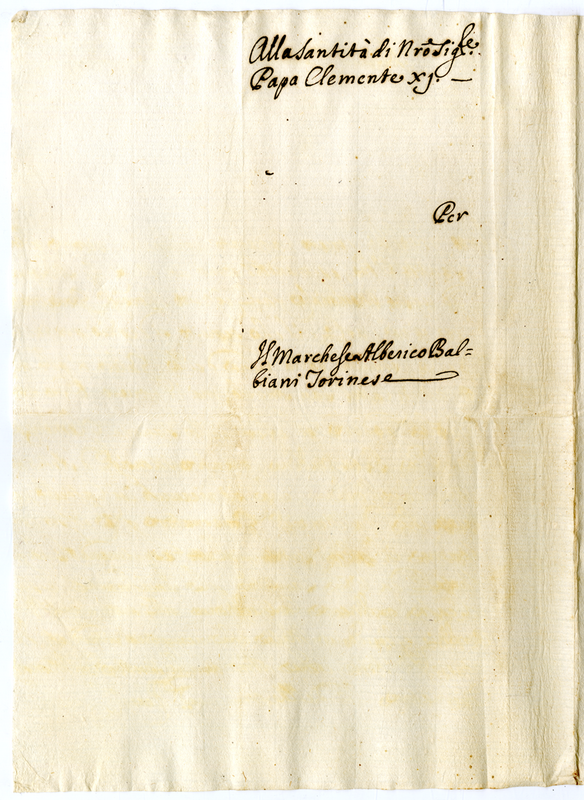 Alla Santità di Nrõ Sig.re
Papa Clemente XJ. —
Per
Il Marchese Alberico Bal=
biani Torinese